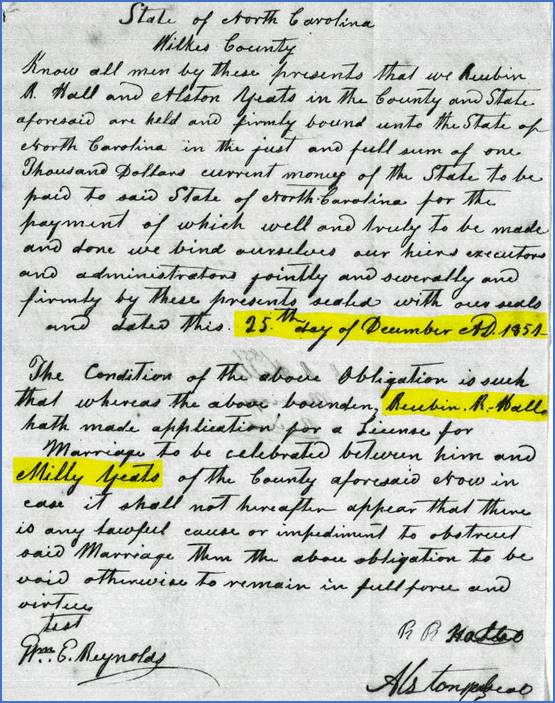 State of North Carolina
Wilkes County
Know all men by these presents that we Reubin
R. Hall and Alston Yeats in the County and State
aforesaid are held and firmly bound unto the State of
North Carolina in the just and full sum of one
Thousand Dollars current money of the State to be
paid to said State of North Carolina for the
payment of which well and truly to be made
and done we bind ourselves our hiers executors
and administrators jointly and severally and
firmly by these presents sealed with our seals
and dated this 25th day of December AD. 1851
The Condition of the above Obligation is such
that whereas the above bounden, Reubin. R. Hall
hath made application for a License for
Marriage to be celebrated between him and
Milly Yeats of the County aforesaid Now in
case it shall not hereafter appear that there
is any lawful cause or impediment to obstruct
said Marriage them the above obligation to be
void otherwise to remain in full force and
virtue
test
Wm. E. Reynolds
R R
Alston